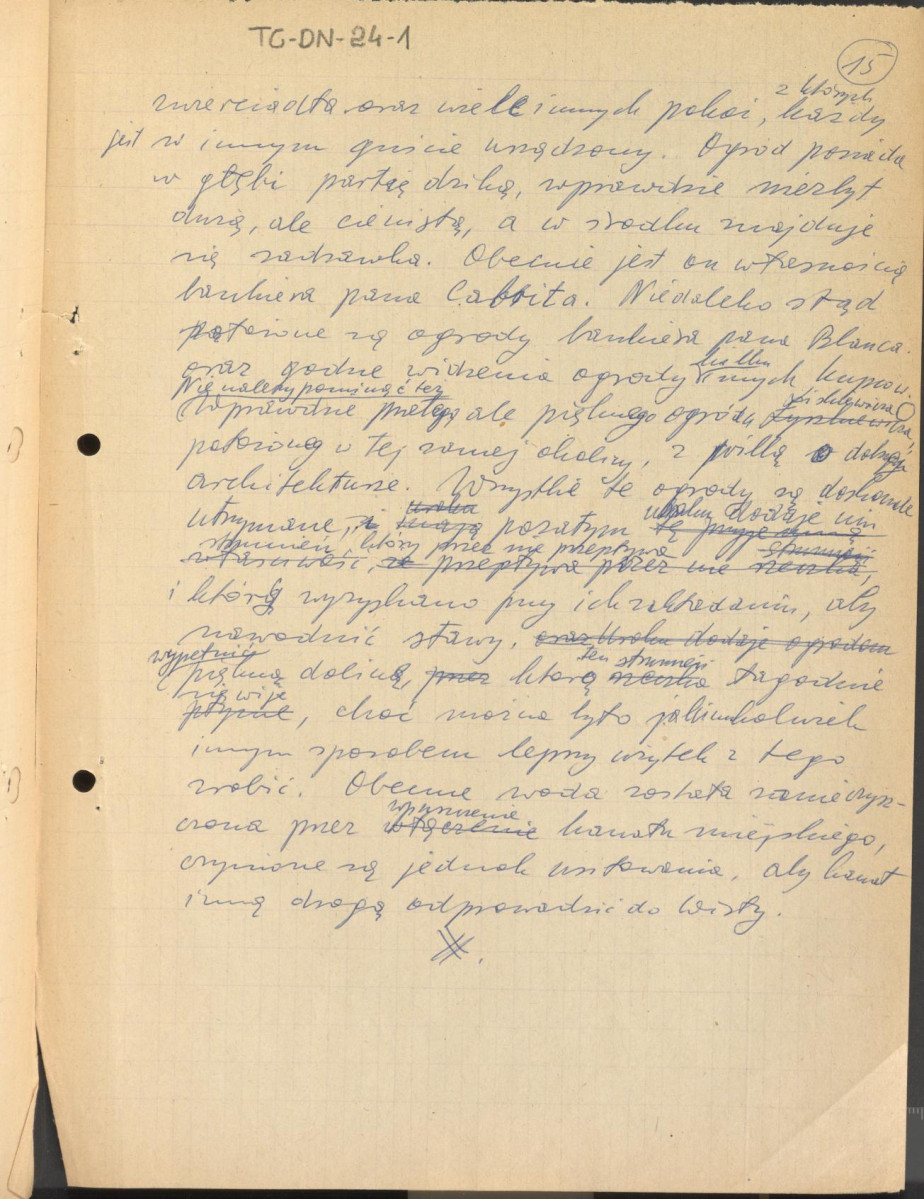 TG-DN-24-1
15
z których
zwierciadła oraz wiele innych pokoi, każdy
jest w innym guście urządzony. Ogród posiada
w głębi partię dziką, wprawdzie niezbyt
dużą, ale cienistą, a w środku znajduje
się sadzawka. Obecnie jest on własnością
bankiera pana Cabbita. Niedaleko stąd
położone są ogrody bankiera pana Blanca
oraz godne widzenia ogrody innych kupców.
kilku
Nie należy pominąć też
Wprawdzie ale pięknego ogrodu
położonego w tej samej okolicy, z willą o
architekturze. Wszystkie te ogrody są doskonale
uroku
utrzymane, i mają pozatym uroku dodaje im
strumień, który przez nie przepływa
właściwość, przepływa przez nie rzeczka,
i którą wyzyskano przy ich zakładaniu, aby
nawodnić stawy. oraz uroku dodaje ogrodom
wypełnić
ten strumyk
piękną dolinę, przez którą rzeczka łagodnie
się wije
płynie, choć można było jakimkolwiek
innym sposobem lepszy użytek z tego
zrobić. Obecnie woda została zanieczysz-
wpuszczenie
czona przez włączenie kanału miejskiego,
czynione są jednak usiłowania, aby kanał
inną drogą odprowadzić do Wisły.